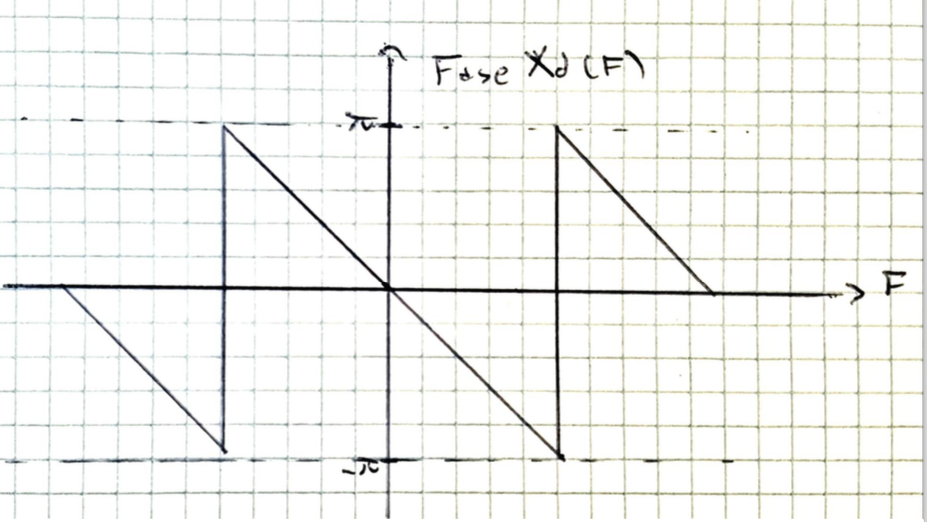 Fase Xd (F)
π
F
-π